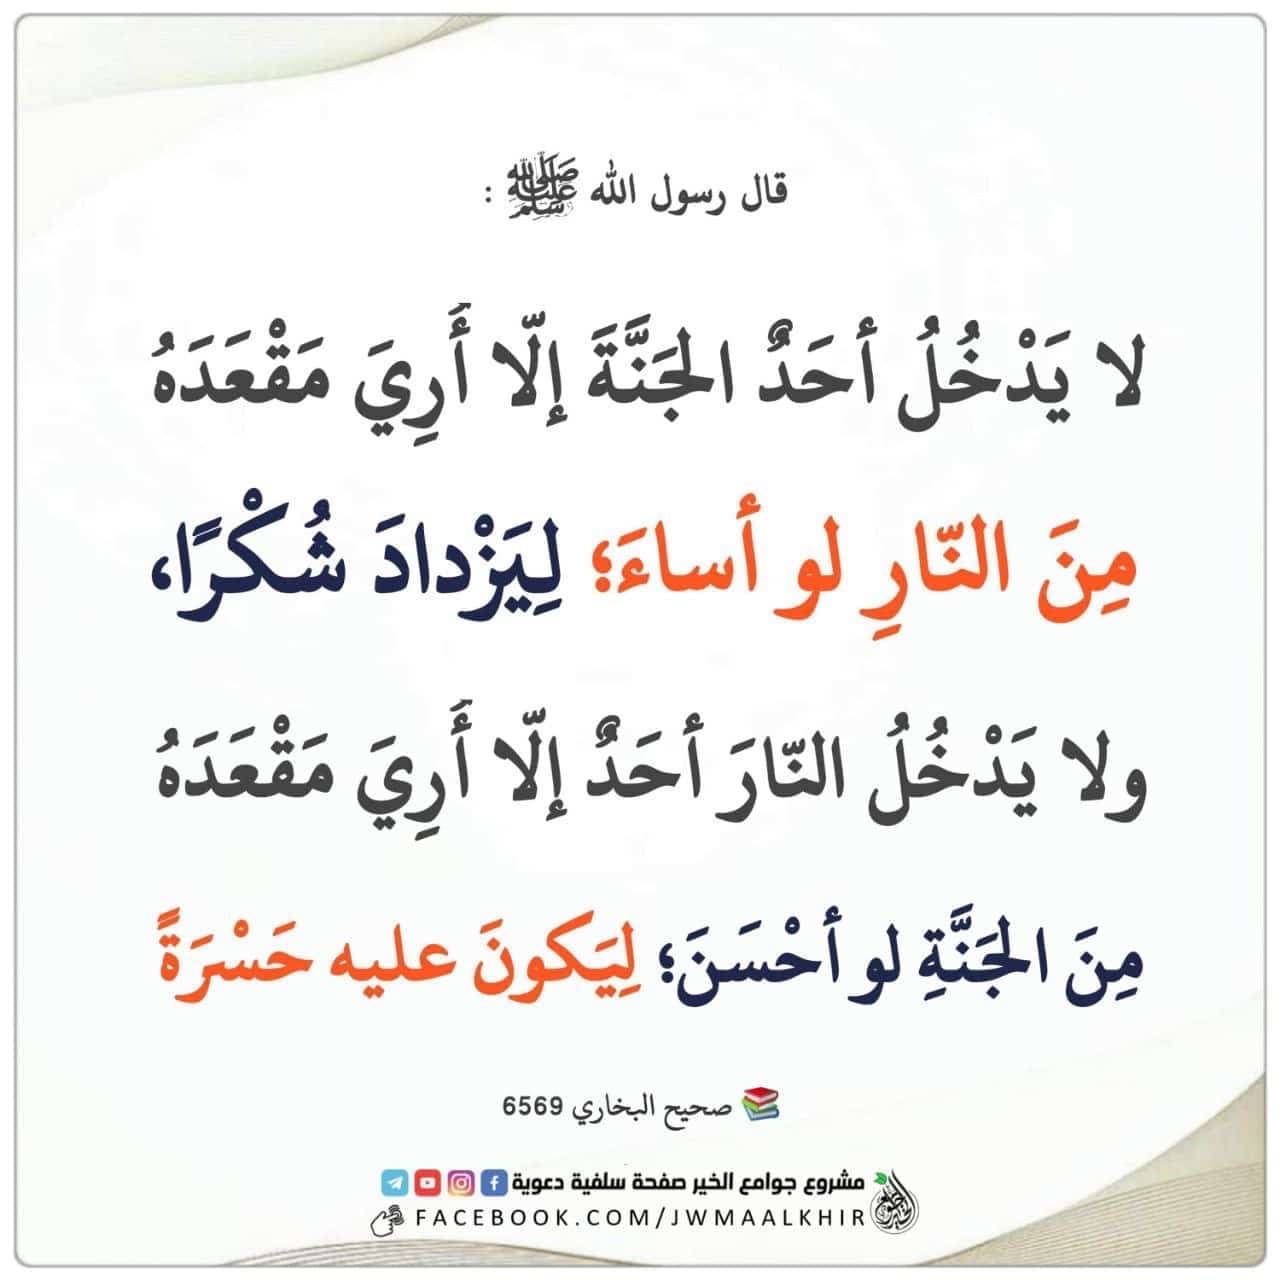 قال رسول الله ﷺ :
لا يَدْخُلُ أحَدٌ الجَنَّةَ إلّا أُرِيَ مَقْعَدَهُ
مِنَ النّارِ لو أساءَ؛ لِيَزْدادَ شُكْرًا،
ولا يَدْخُلُ النّارَ أحَدٌ إلّا أُرِيَ مَقْعَدَهُ
مِنَ الجَنَّةِ لو أحْسَنَ؛ لِيَكونَ عليه حَسْرَةً
صحيح البخاري 6569
مشروع جوامع الخير صفحة سلفية دعوية
FACEBOOK.COM/JWMAALKHIR